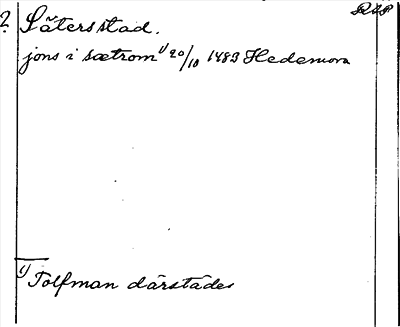 2. Sätersstad. RAP
jons i sætrom 1) 20/10 1489 Hedemora
1) Tolfman därstädes